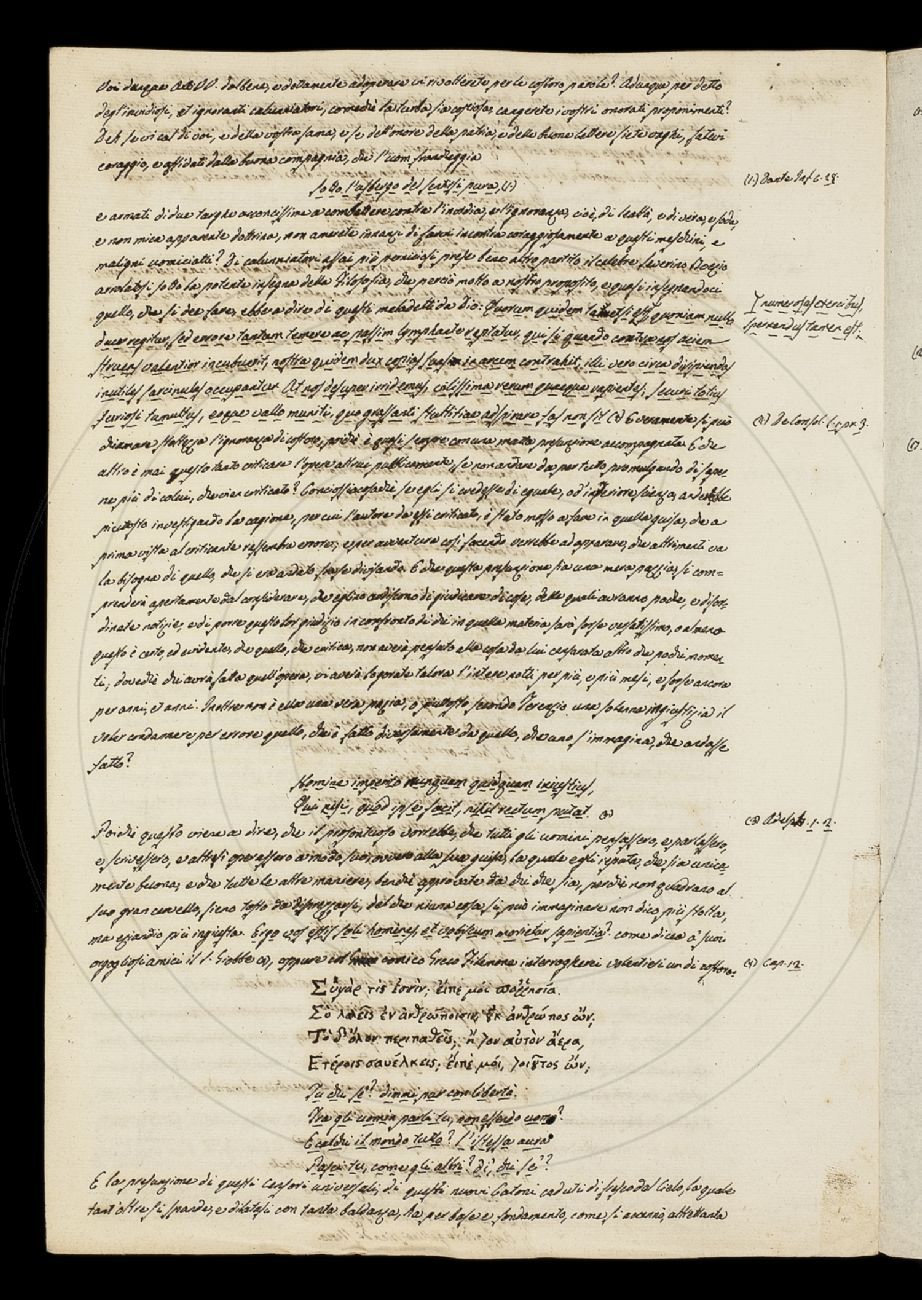 Voi dunque AA. VV. dal bene, e dotamente adoperare vi rivolterete per le costoro parole? Adunque per detto
degl'invidiosi, et ignoranti calunniatori, comechè la turba sia copiosa, cangerete i vostri onorati proponimenti?
Deh se vi cal di voi, e della vostra fama, e se dell'onore della patria, e delle buone lettere siete vaghi, fatevi
coraggio, e affidati dalla buona compagnia, che l'uom francheggia
Sotto l'asbergo del sentirsi pura, (1)
(1) Dante Inf. C. 28.
e armati di due targhe acconcissime a combattere contra l'invidia, e l'ignoranza, cioè, di lealtà, e di vera, e soda,
e non mica apparente dottrina, non amerete innanzi di farvi incontra coraggiosamente a questi meschini, e
maligni omiciatti? Di calunniatori assai più perniciosi prese bene altro partito il celebre Severino Boezio
arrolatosi sotto la potente insegna della Filosofia, che perciò molto a nostro proposito, e quasi insegnandoci
quello, che si dee fare, ebbe a dire di questi maladetti da Dio: Quorum quidem tametsi est quoniam nullo
numerosus exercitus,
spernendus tamen est.
duce regitur, sed errore tantum temere ac passim lymphante raptatur, qui si quando contra nos aciem
struens valentior incubuerit, nostra quidem dux copias suas in arcem contrahit, illi vero circa diripiendas
inutiles sarcinulas occupantur. At nos desuper irridemus, vilissima rerum quaeque rapientes, securi totius
furiosi tumultus, eoque vallo muniti, quo grassanti stultitiae adspirare fas non sit (2) E veramente si può
(2) De Consol. l. 1. pr. 3.
chiamare stoltezza l'ignoranza di costoro, poichè è quasi sempre con una matta presunzione accompagnata. E che
altro è mai questo tanto criticare l'opere altrui pubblicamente, se non andare da per tutto promulgando di saper-
ne più di colui, che vien criticato? Conciossiacosachè se egli si credesse di eguale, od inferiore scienza, andrebbe
piuttosto investigando la cagione, per cui l'autore da essi criticato, è stato mosso a fare in quella guisa, che a
prima vista al criticante rassembra errore; e per avventura così facendo verrebbe ad apparare, che altrimenti va
la bisogna di quello, che si era andato forse divisando. E che questa presunzione sia una mera pazzia, si com-
prenderà apertamente dal considerare, che eglino ardiscono di giudicare di cose, delle quali avranno poche, e disor-
dinate notizie, e di porre questo lor giudizio in confronto di chi in quella materia sarà forse versatissimo, o almeno
questo è certo, ed evidente, che quello, che critica, non averà pensato alla cosa da lui censurata altro che pochi momen-
ti, dovechè chi avrà fatta quell'opera, vi averà sogorate talora l'intere notti per più, e più mesi, e forse ancora
per anni, et anni. Inoltre non è ella una vera pazzia, o piuttosto secondo Terenzio una solenne ingiustizia il
voler condannare per errore quello, che è fatto diversamente da quello, che uno s'immagina, che andasse
fatto?
Homine imperito nunquam quidquam iniustius,
Qui nisi, quod ipse facit, nihil rectum putat. (3)
(3) Adelph. 1. 2.
Poichè questo viene a dire, che il prosontuoso vorrebbe, che tutti gli uomini pensassero, e parlassero,
e scrivessero, e altresì operassero a modo suo, ovvero alla sua guisa, la quale egli reputa, che sia unica-
mente buona, e che tutte le altre maniere, benchè approvate da chi che sia, perchè non quadrano al
suo gran cervello, sieno tosto da disprezzarsi, del che niuna cosa si può immaginare non dico più stolta,
ma eziandio più ingiusta. Ergo vos estis soli homines, et vobiscum morietur sapientia? come dicea a' suoi
orgogliosi amici il S. Giobbe (4), oppure col comico Greco Filemone interrogherei volentieri un di costoro.
(4) Cap. 12.
Σὺ γάρ τίς ἐσσίν; εἰπέ μοι παῤῥησία.
Σὺ λαλεῖς ἐν ἀνθρώποισιν, ȣ̓κ ἄνθρωπος ὤν;
Τὸ δ' ὅλον περιπαθεῖς; ἢ τὸν αὐτὸν ἀέρα,
Ἑτέροις σαυέλκεις; εἰπέ μοι, τοιȣ̃τος ὤν;
Tu chi se'? dimmi pur con libertà.
Tra gli uomin parli tu, non essendo uomo?
E calchi il mondo tutto? l'istessa aura
Respiri tu, come gli altri? di', chi se'?
E la presunzione di questi Censori universali, di questi nuovi Catoni caduti di fresco dal Cielo, la quale
tant'oltre si spande, e dilatasi con tanta baldanza, ha per base e fondamento, come si accennò, altrettanta